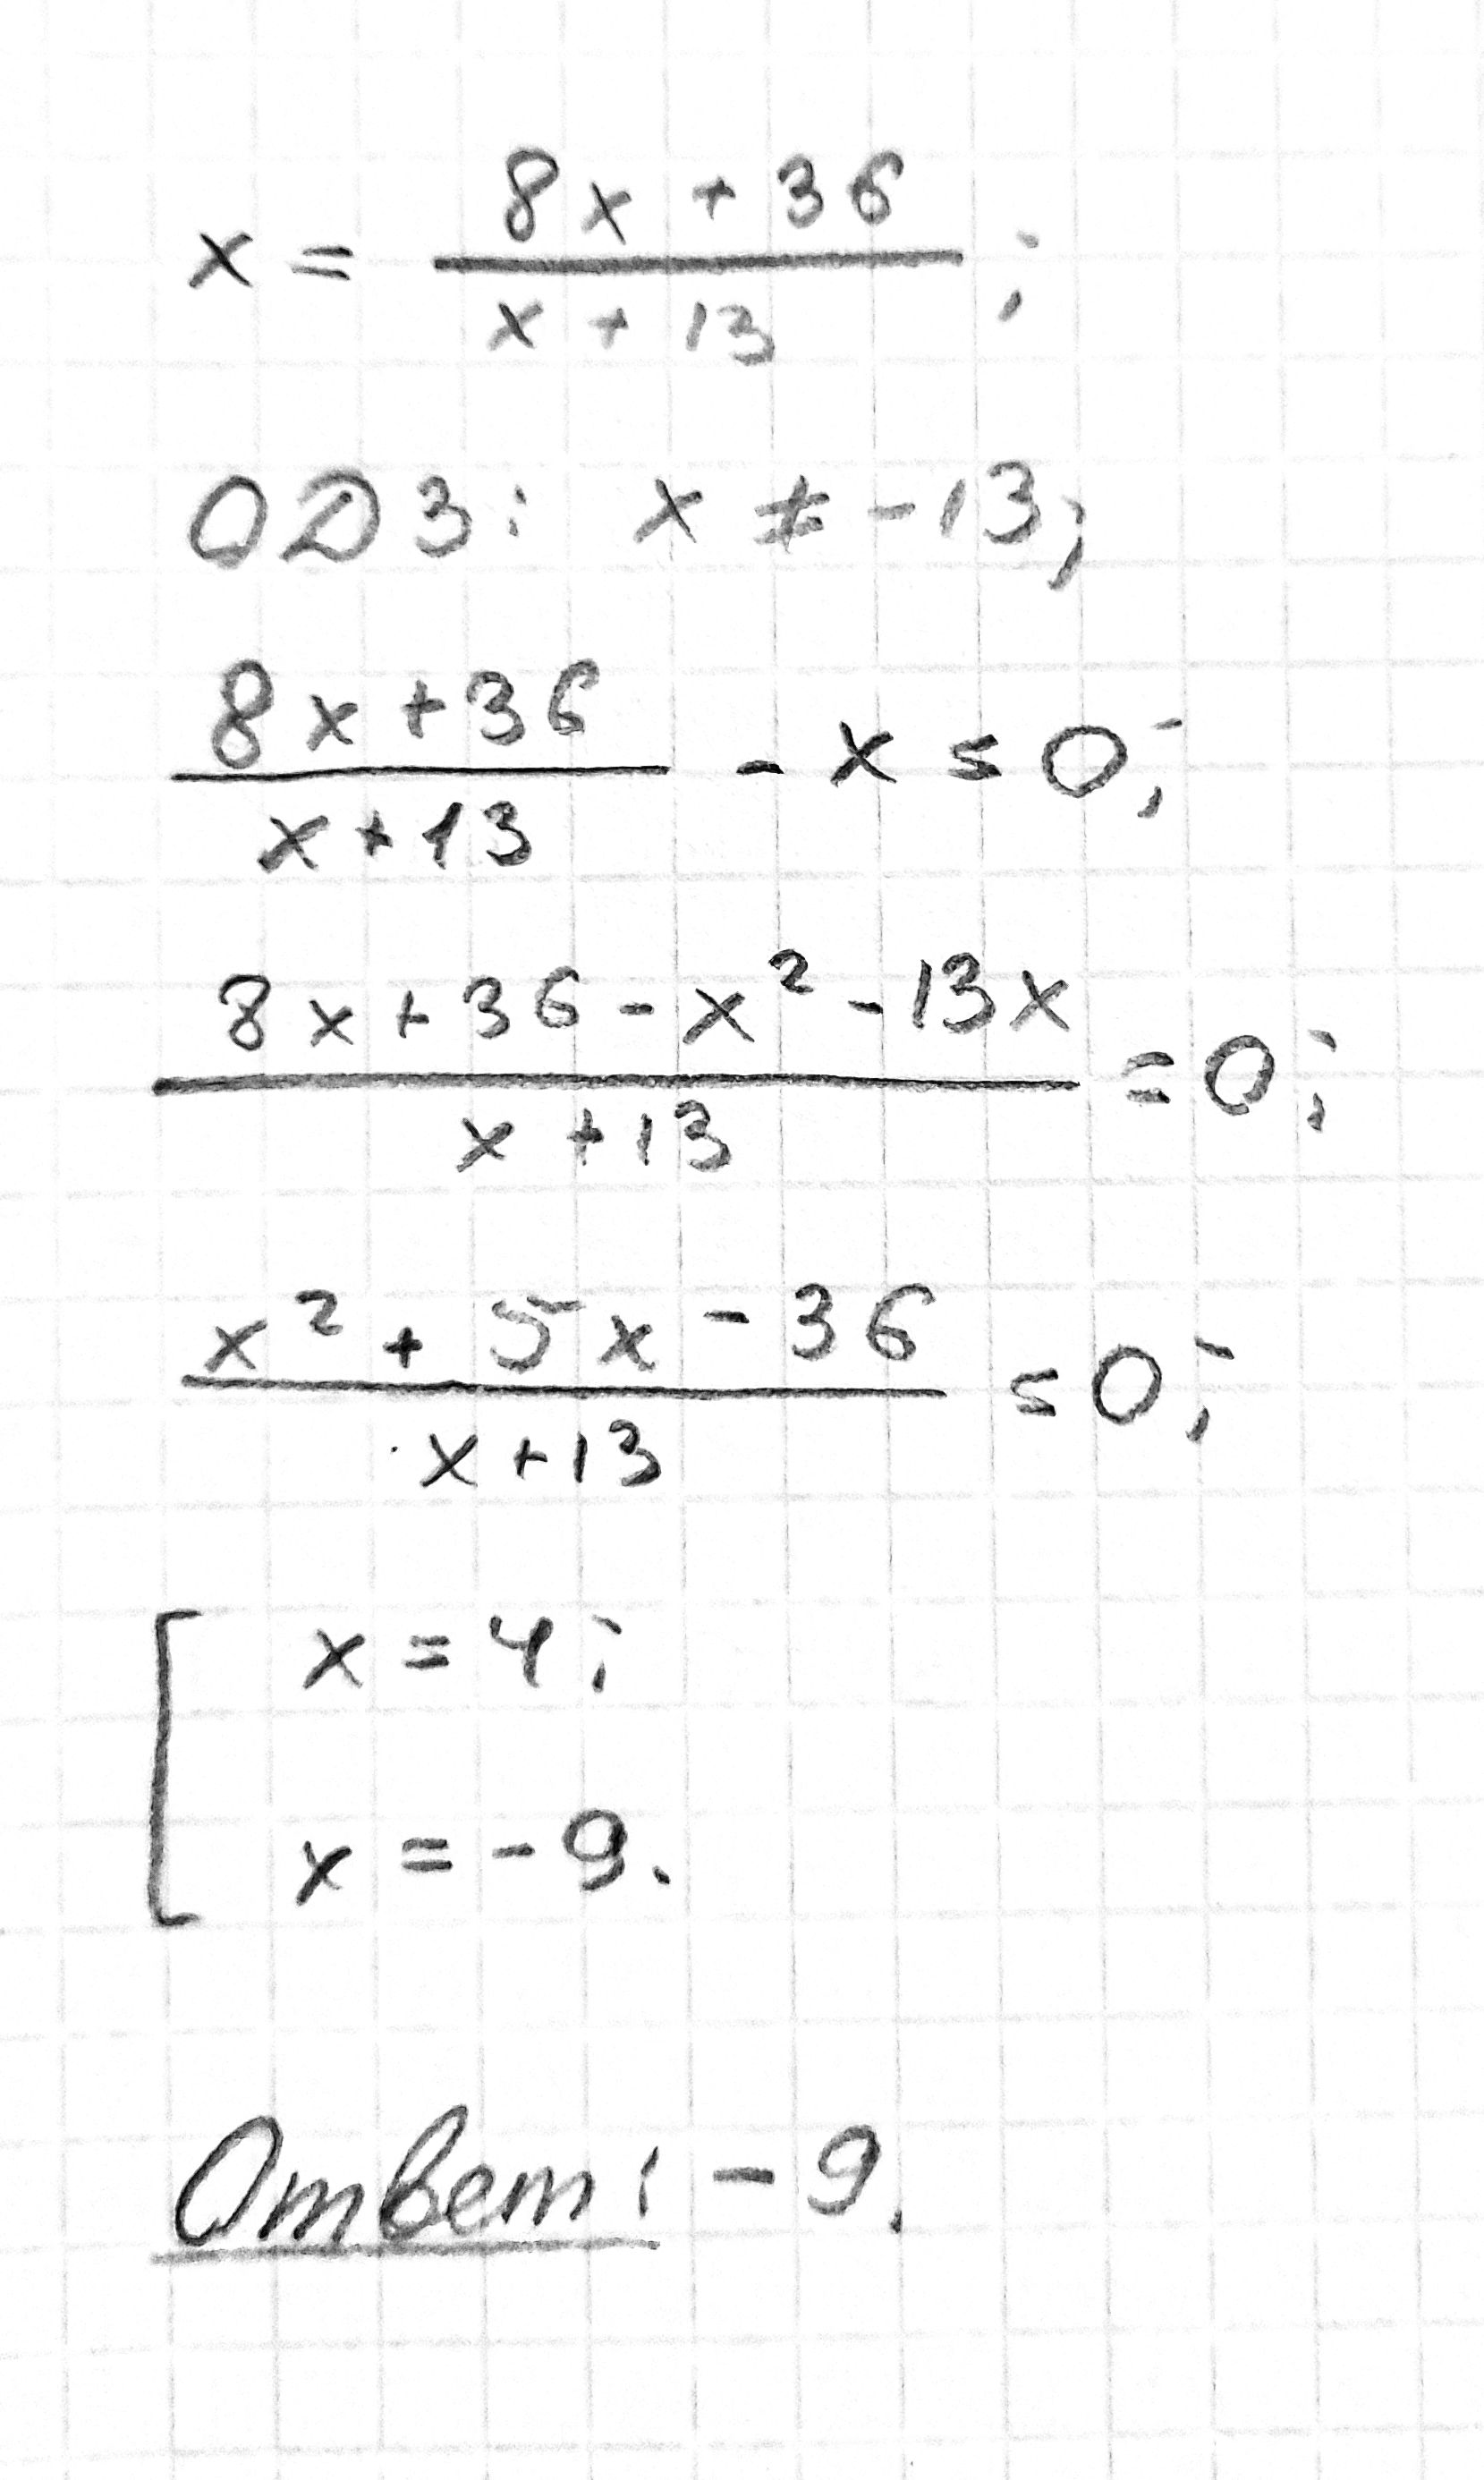 x = (8x + 36)/(x + 13);
ОДЗ: x ≠ -13;
(8x + 36)/(x + 13) - x = 0;
(8x + 36 - x² - 13x)/(x + 13) = 0;
(x² + 5x - 36)/(x + 13) = 0;
[ x = 4;
x = -9.
Ответ: -9.